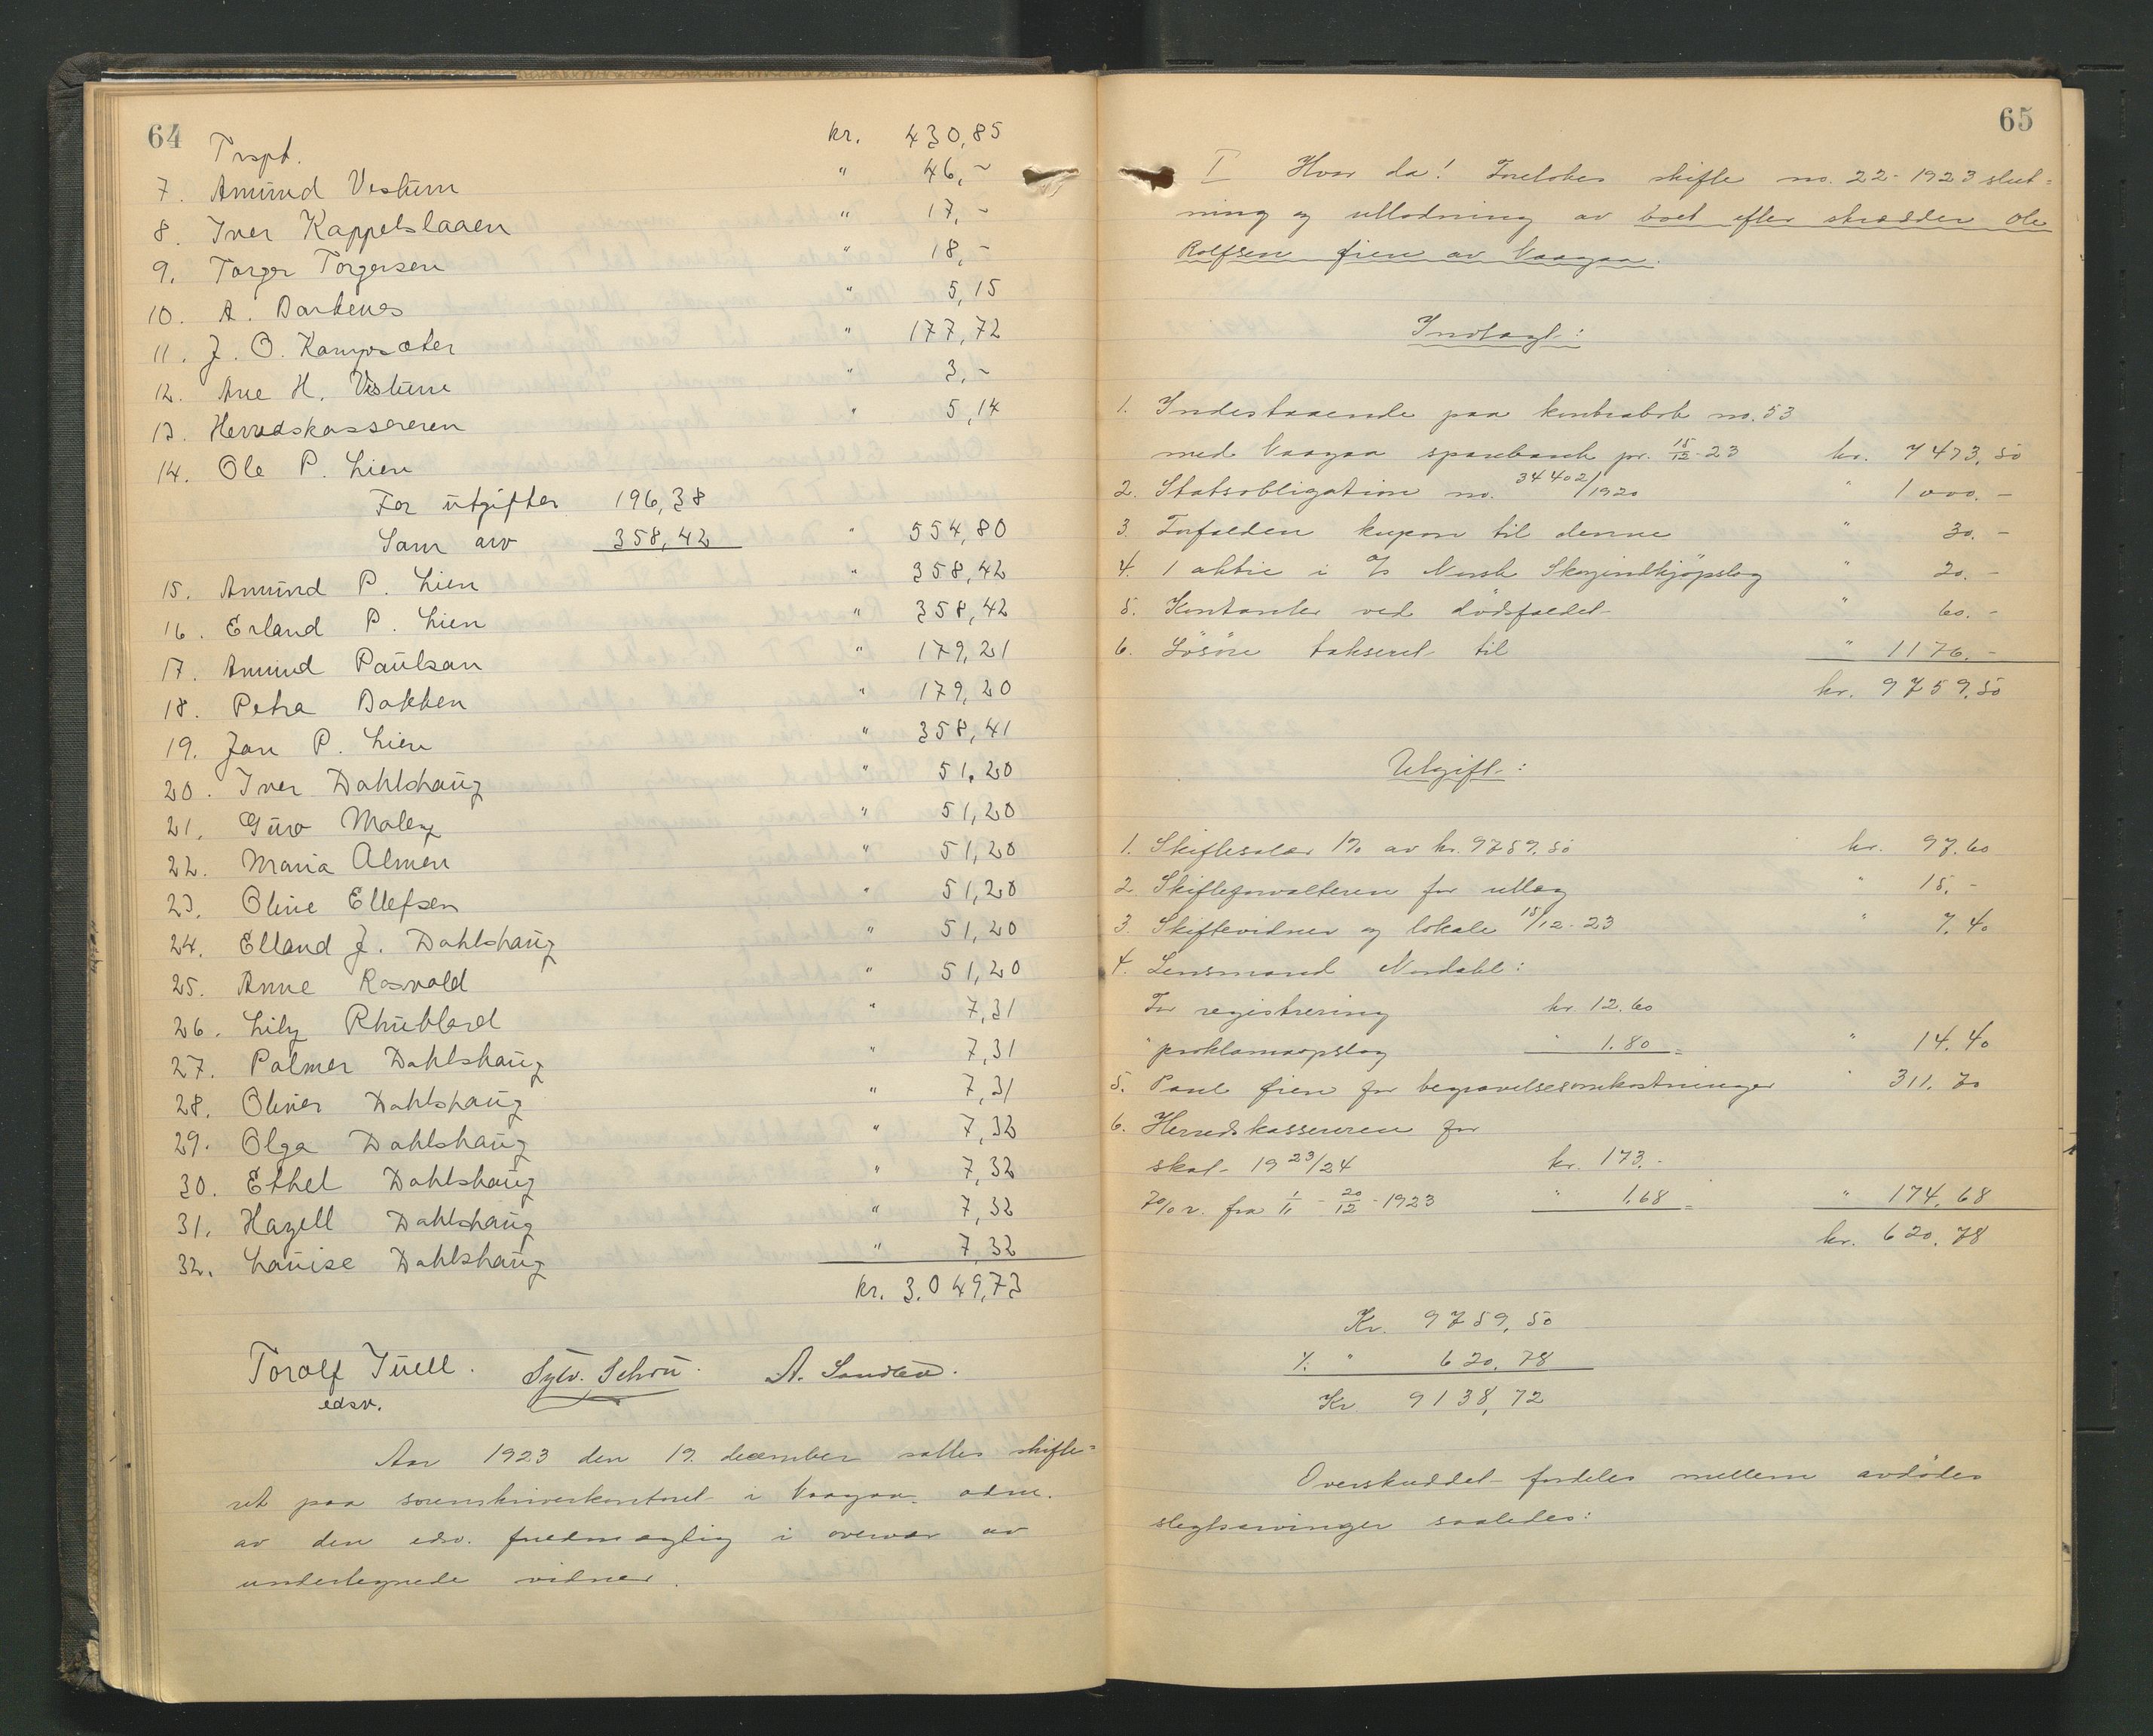 64
Trspt. kr. 430,85
7. Amund Vistum " 46,-
8. Iver Kappelslaaen " 17,-
9. Torger Torgersen " 18,-
10. A. Dartenes " 5,15
11. J. O. Kampsæter " 177,72
12. Ane H. Vistum " 3,-
13. Herredskassereren " 5,14
14. Ole P. Lien
For utgifter 196,38
Som arv 358,42 " 554,80
15. Amund P. Lien " 358,42
16. Erland P. Lien " 358,42
17. Amund Paulsan " 179,21
18. Petra Dokken " 179,20
19. Jan P. Lien " 358,41
20. Iver Dahlshaug " 51,20
21. Guro Moley " 51,20
22. Maria Almen " 51,20
23. Oline Ellefsen " 51,20
24. Elland J. Dahlshaug " 51,20
25. Anne Rosvold " 51,20
26. Lily Rhublard " 7,31
27. Palmer Dahlshaug " 7,31
28. Oliver Dahlshaug " 7,31
29. Olga Dahlshaug " 7,32
30. Ethel Dahlshaug " 7,32
31. Hazell Dahlshaug " 7,32
32. Louise Dahlshaug " 7,32
kr. 3.049,73
Toralf Juell. Sylv. Schou. A. Sandbo.
edsv.
Aar 1923 den 19. december sattes skifte=
ret paa sorenskriverkontoret i Vaagaa, adm.
av den edsv. fuldmægtig i overvær av
undertegnede vidner.
65
I Hvor da! Foretokes skifte no. 22-1923 slut=
ning og utlodning av boet efter skrædder Ole
Rolfsen Øien av Vaagaa.
Indtægt:
1. Indestaaende paa kontrabok no. 53
med Vaagaa sparebank pr. 15/12-23 kr. 7473,50
2. Statsobligation no. 34402/1920 " 1000.-
3. Forfalden kupon til denne " 30.-
4. 1 aktie i A/S Norsk Skogindkjøpslag " 20.-
5. Kontanter ved dødsfaldet " 60.-
6. Løsøre takseret til " 1176.-
kr. 9759,50
Utgift:
1. Skiftesalær 1% av kr. 9759.50 kr. 97.60
2. Skifteforvalteren for utlæg " 15.-
3. Skiftevidner og lokale 15/12-23 " 7.40
4. Lensmand Nordahl:
For registrering kr. 12.60
" proklamaopslag " 1.80 = " 14.40
5. Paul Øien for begravelsesomkostninger " 311.70
6. Herredskassereren for
skat 1923/24 kr. 173.-
7% r. fra 1/11 - 20/12 -1923 " 1.68 = " 174.68
kr. 620.78
Kr. 9759,50
÷ " 620.78
Kr. 9138,72
Overskuddet fordeles mellem avdødes
slegtsarvinger saaledes: